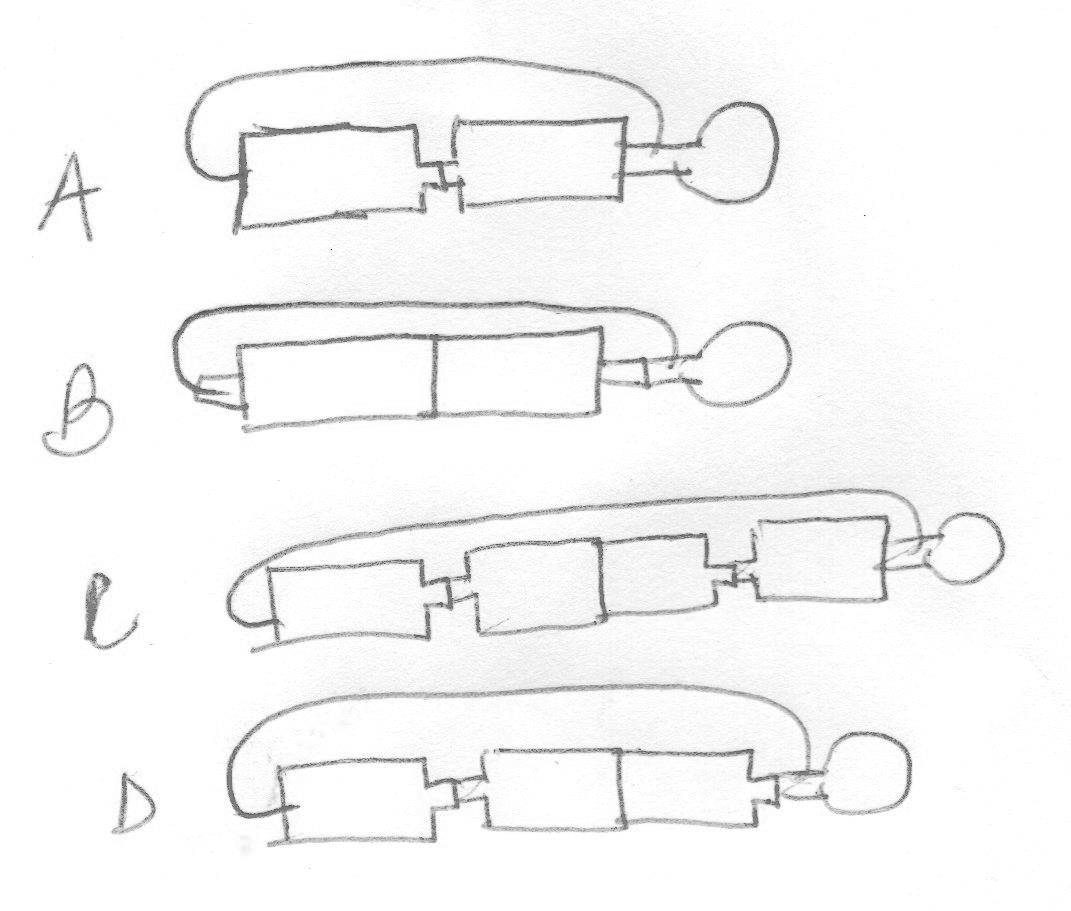 A
B
C
D